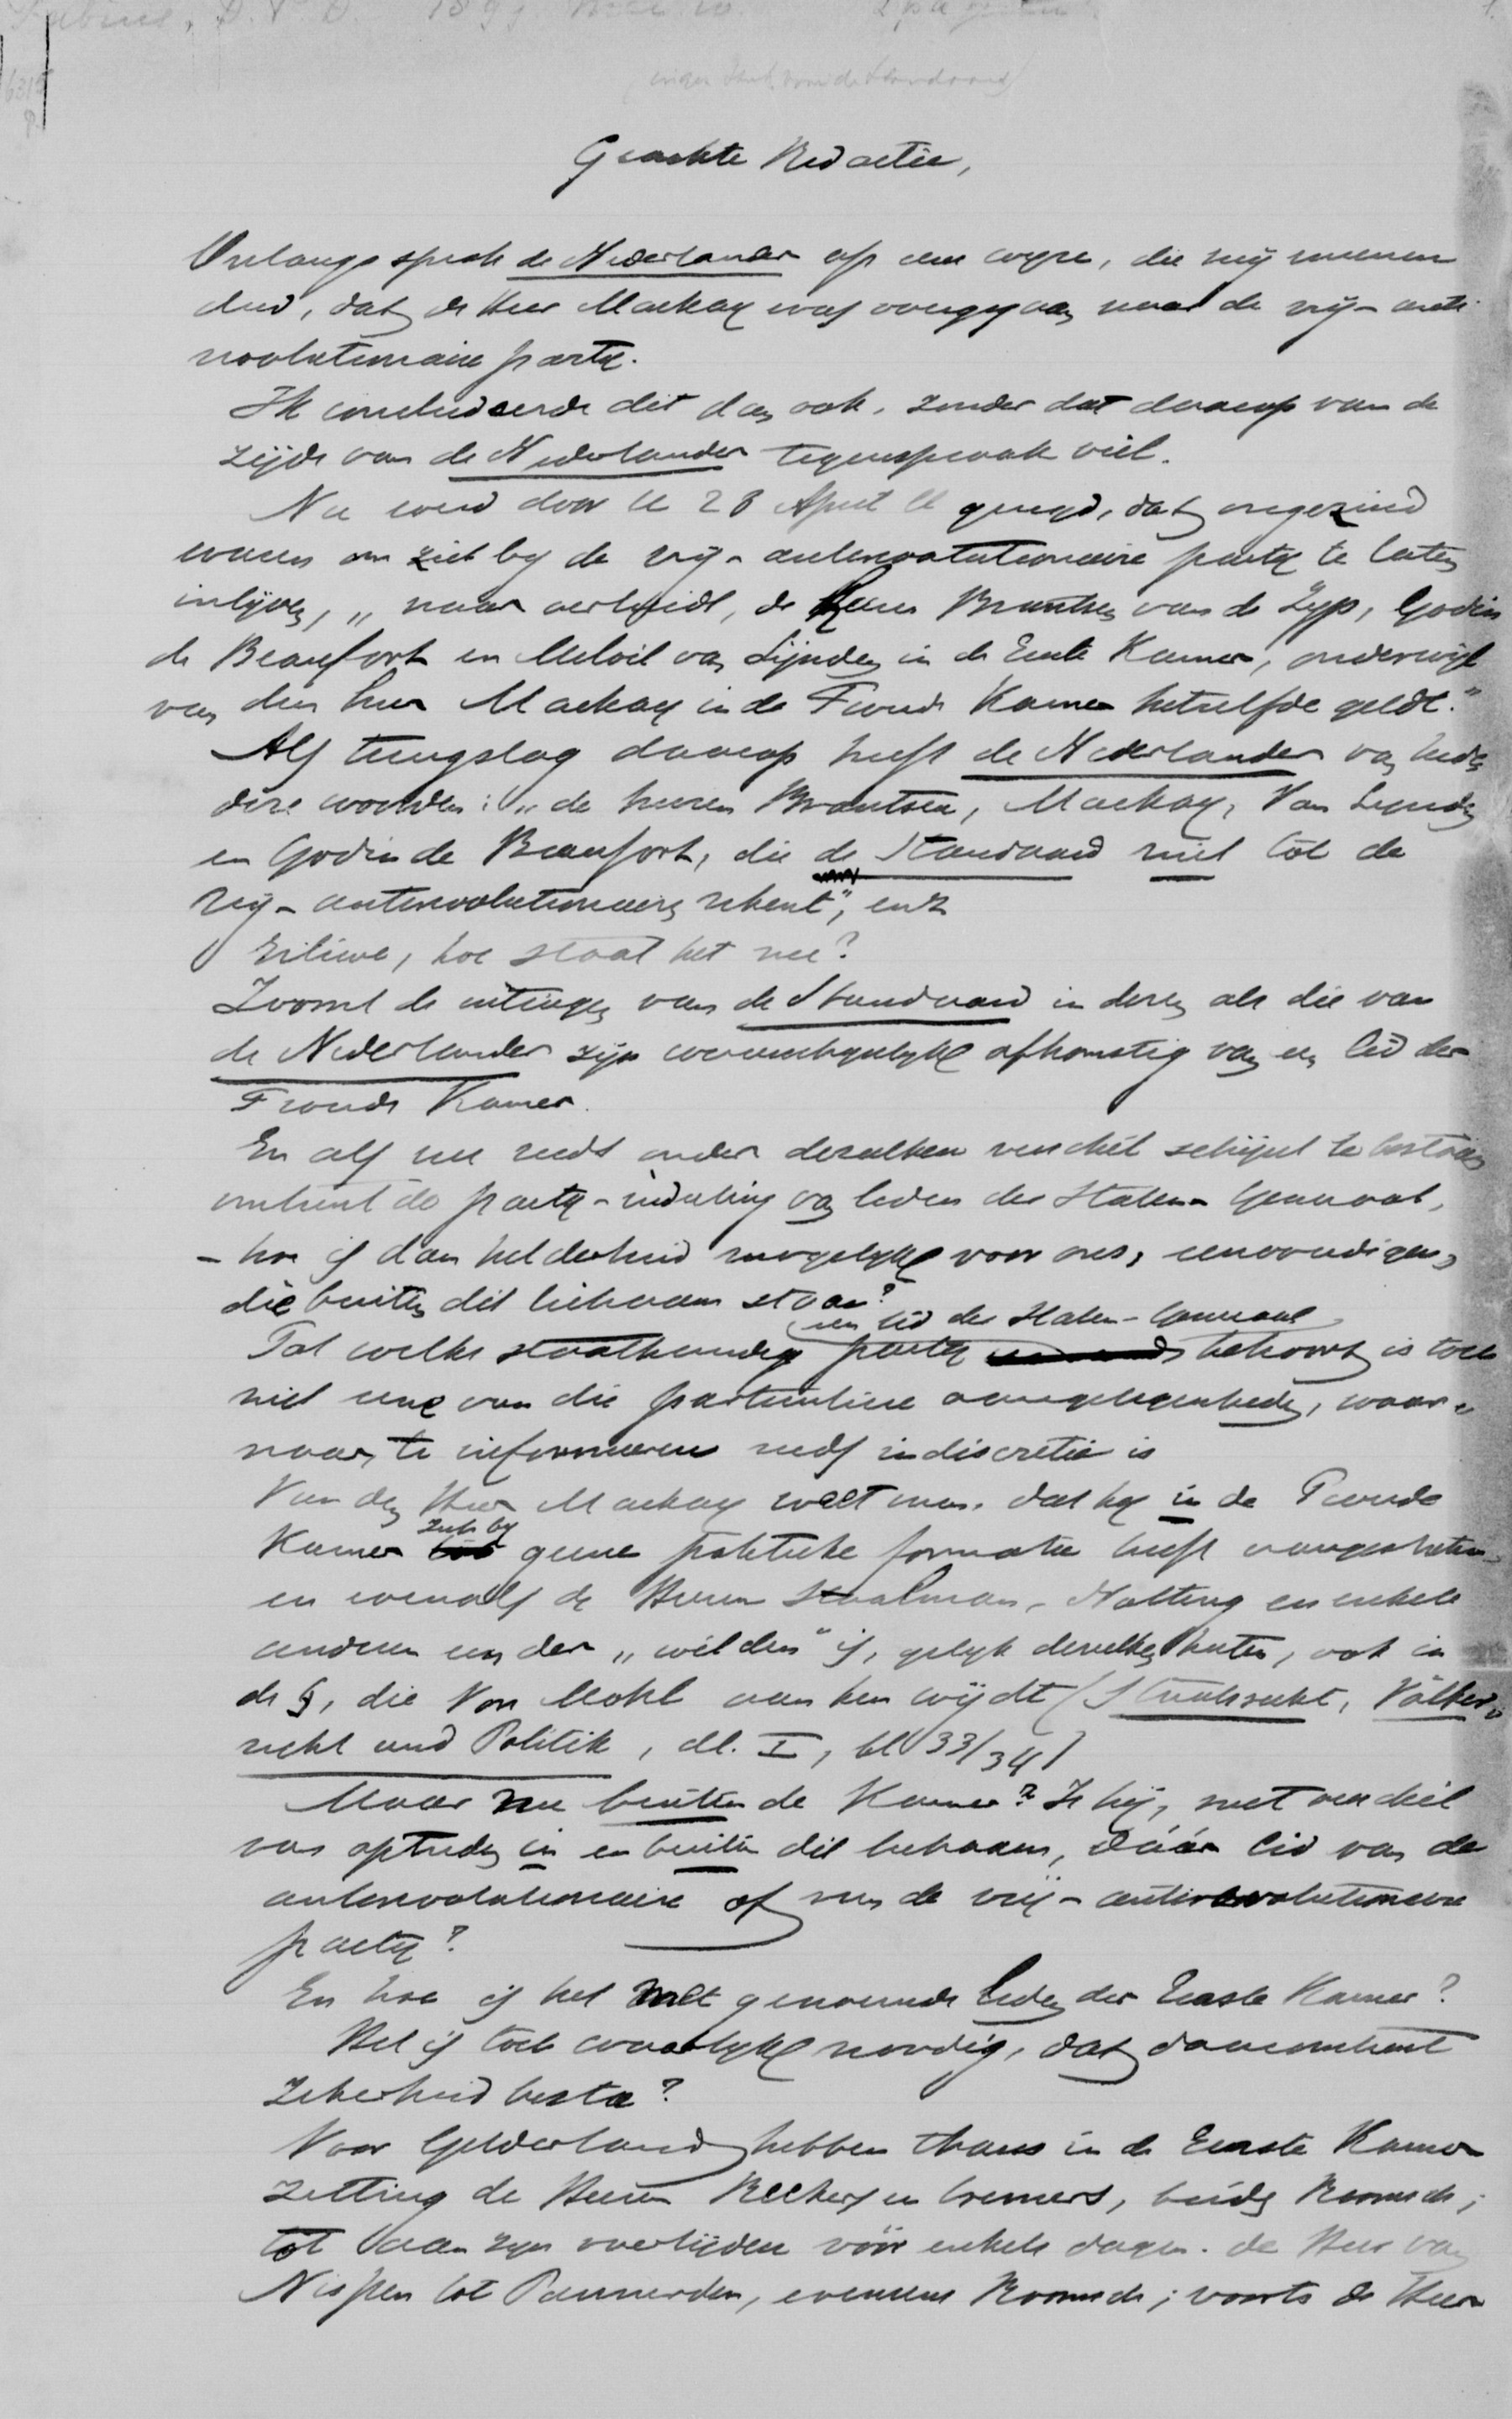 Fabius, D. P. D. 1899
1.
6315
P.
Geachte Redactie,
Onlangs sprak de Nederlander op eene wyze, die my meenen
deed, dat de Heer Mackay was overgegaan naar de vrij-anti
revolutionaire party.
Ik concludeerde dit dan ook, zonder dat daarop van de
zijde van de Nederlander tegenspraak viel.
Nu werd door U 28 April ll gezegd, dat ongezind
waren om zich by de vrij-antirevolutionaire party te laten
inlijven, „naar verluidt, de Heeren Brantsen van de Zyp, Godin
de Beaufort en Melvil van Lijnden in de Eerste Kamer, onderwijl
van den heer Mackay in de Tweede Kamer hetzelfde geldt."
Als terugslag daarop heeft de Nederlander van heden
deze woorden: „de heeren Brantsen, Mackay, Van Lynden
en Godin de Beaufort, die de Standaard niet tot de
vrij-antirevolutionairen rekent", enz
Eilieve, hoe staat het nu?
Zoowel de uitingen van de Standaard in dezen als die van
de Nederlander zijn waarschynlyk afkomstig van een lid der
Tweede Kamer.
En als nu reeds onder dezulken verschil schijnt te bestaan
omtrent de party-indeeling van leden der Staten-Generaal,
- hoe is dan helderheid mogelyk voor ons, eenvoudigen,
die buiten dit lichaam staan?
een lid der Staten-Generaal
Tot welke staatkundige party behoort is toch
niet eene van die particuliere aangelegenheden, waar-
naar te informeeren reeds indiscretie is
Van den Heer Mackay weet men, dat hy in de Tweede
zich by
Kamer geene politieke formatie heeft aangesloten
en evenals de Heeren Staalman, Nolting en enkele
anderen een der „wilden" is, gelyk dezulken heeten, ook in
de §, die Von Mohl aan hen wijdt (Staatsrecht, Völker-
recht und Politik, dl. I, bl 33/34)
Maar nu buiten de Kamer? Is hij, met verschil
van optreden in en buiten dit lichaam, dáár lid van de
antirevolutionaire of van de vrij-antirevolutionaire
party?
En hoe is het met genoemde leden der Eerste Kamer?
Het is toch waarlyk noodig, dat daaromtrent
zekerheid besta?
Voor Gelderland hebben thans in de Eerste Kamer
zitting de Heeren en Cremers, beide Roomsch;
tot aan zyn overlijden vóór enkele dagen de Heer van
Nispen tot Pannerden, eveneens Roomsch; voorts de Heer